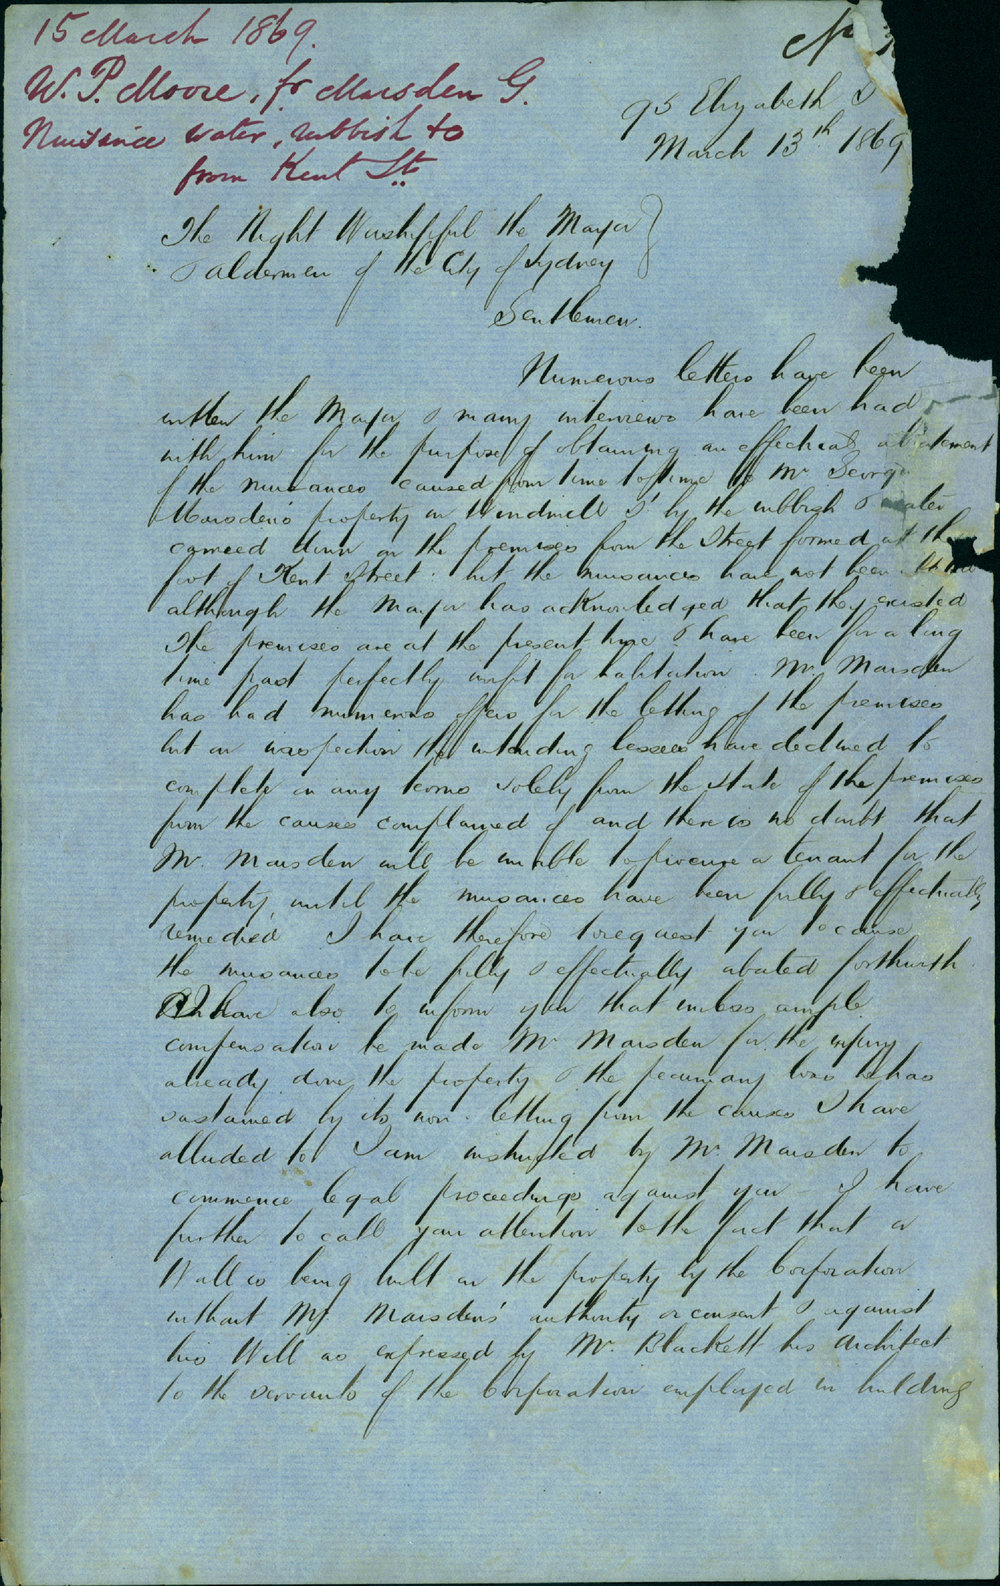 15 March 1869.
W. P. Moore, fr Marsden G.
Nuisance water, rubbish &c
from Kent St.
No
95 Elizabeth St
March 13th 1869
The Right Worshipful the Mayor
& aldermen of the City of Sydney
Gentlemen.
Numerous letters have been
written the Mayor & many interviews have been had
with him for the purpose of obtaining an effectual abatement
of the nuisances caused from time to time to Mr George
Marsden's property in Windmill St by the rubbish & water
carried down on the premises from the Street formed at the
foot of Kent Street: but the nuisances have not been abated
although the Mayor has acknowledged that they existed
The premises are at the present time & have been for a long
time past perfectly unfit for habitation. Mr. Marsden
has had numerous offers for the letting of the premises
but on inspection the intending lessees have declined to
complete on any terms solely from the state of the premises
from the causes complained of and there is no doubt that
Mr. Marsden will be unable to procure a tenant for the
property, until the nuisances have been fully & effectually
remedied I have therefore to request you to cause
the nuisances to be fully & effectually abated forthwith.
I have also to inform you that unless ample
compensation be made Mr Marsden for the injury
already done the property & the pecuniary loss he has
sustained by its non-letting from the causes I have
alluded to I am instructed by Mr. Marsden to
commence legal proceedings against you – I have
further to call your attention to the fact that a
Wall is being built on the property by the Corporation
without Mr Marsden's authority or consent & against
his Will as expressed by Mr. Blackett his architect
to the servants of the Corporation employed in building